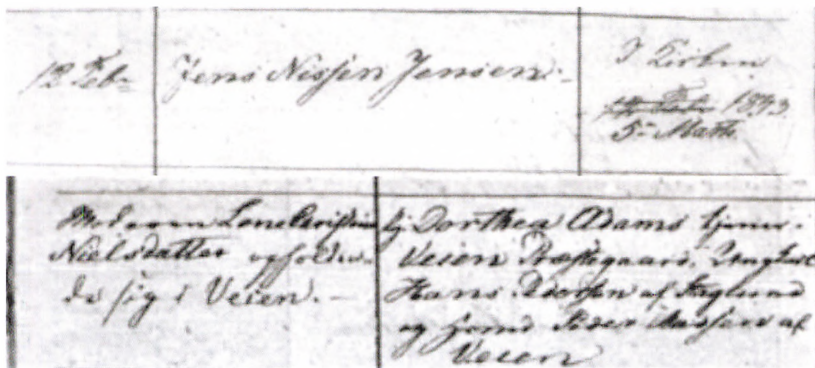 12 Febr
Jens Nissen Jensen.-
I Kirken
1843
5te Marts
Moderen Lene Cristine
Nielsdatter opholden-
de sig i Veien.-
Dorthea Adams tjener.
Veien Præstegaard, Ungkarl
Hans af
og Peder Madsen af
Veien